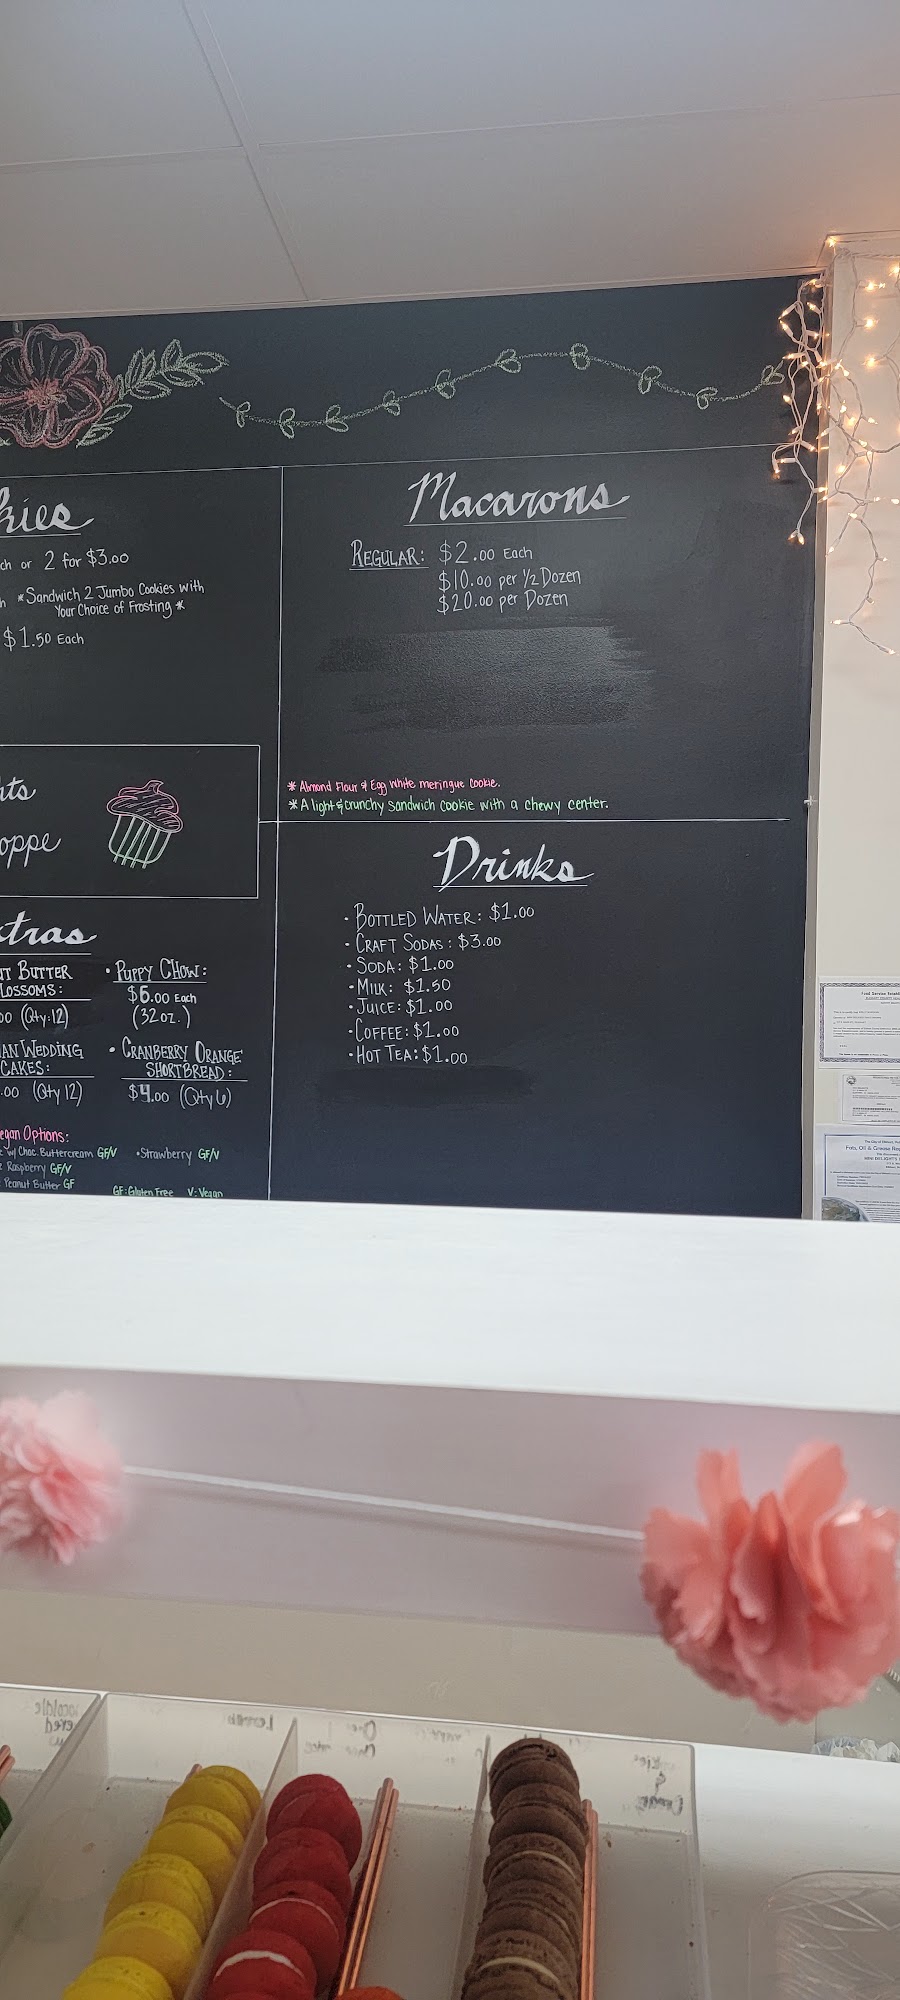 kies
Macarons
ch or 2 for $3.00
*Sandwich 2 Jumbo Cookies with
Your Choice of Frosting *
$1.50 Each
REGULAR: $2.00 Each
$10.00 per 1/2 Dozen
$20.00 per Dozen
hts
oppe
* Almond Flour & Egg White meringue cookie.
* A light & crunchy sandwich cookie with a chewy center.
Drinks
• BOTTLED WATER: $1.00
• CRAFT SODAS: $3.00
• SODA: $1.00
• MILK: $1.50
• JUICE: $1.00
• COFFEE: $1.00
• HOT TEA: $1.00
tras
UT BUTTER
LOSSOMS:
00 (Qty:12)
• PUPPY CHOW:
$6.00 Each
(32oz.)
IAN WEDDING
CAKES:
.00 (Qty 12)
• CRANBERRY ORANGE
SHORTBREAD:
$4.00 (Qty 6)
egan Options:
w/ Choc. Buttercream GF/V
• Strawberry GF/V
Raspberry GF/V
Peanut Butter GF
GF: Gluten Free V: Vegan
Lemon